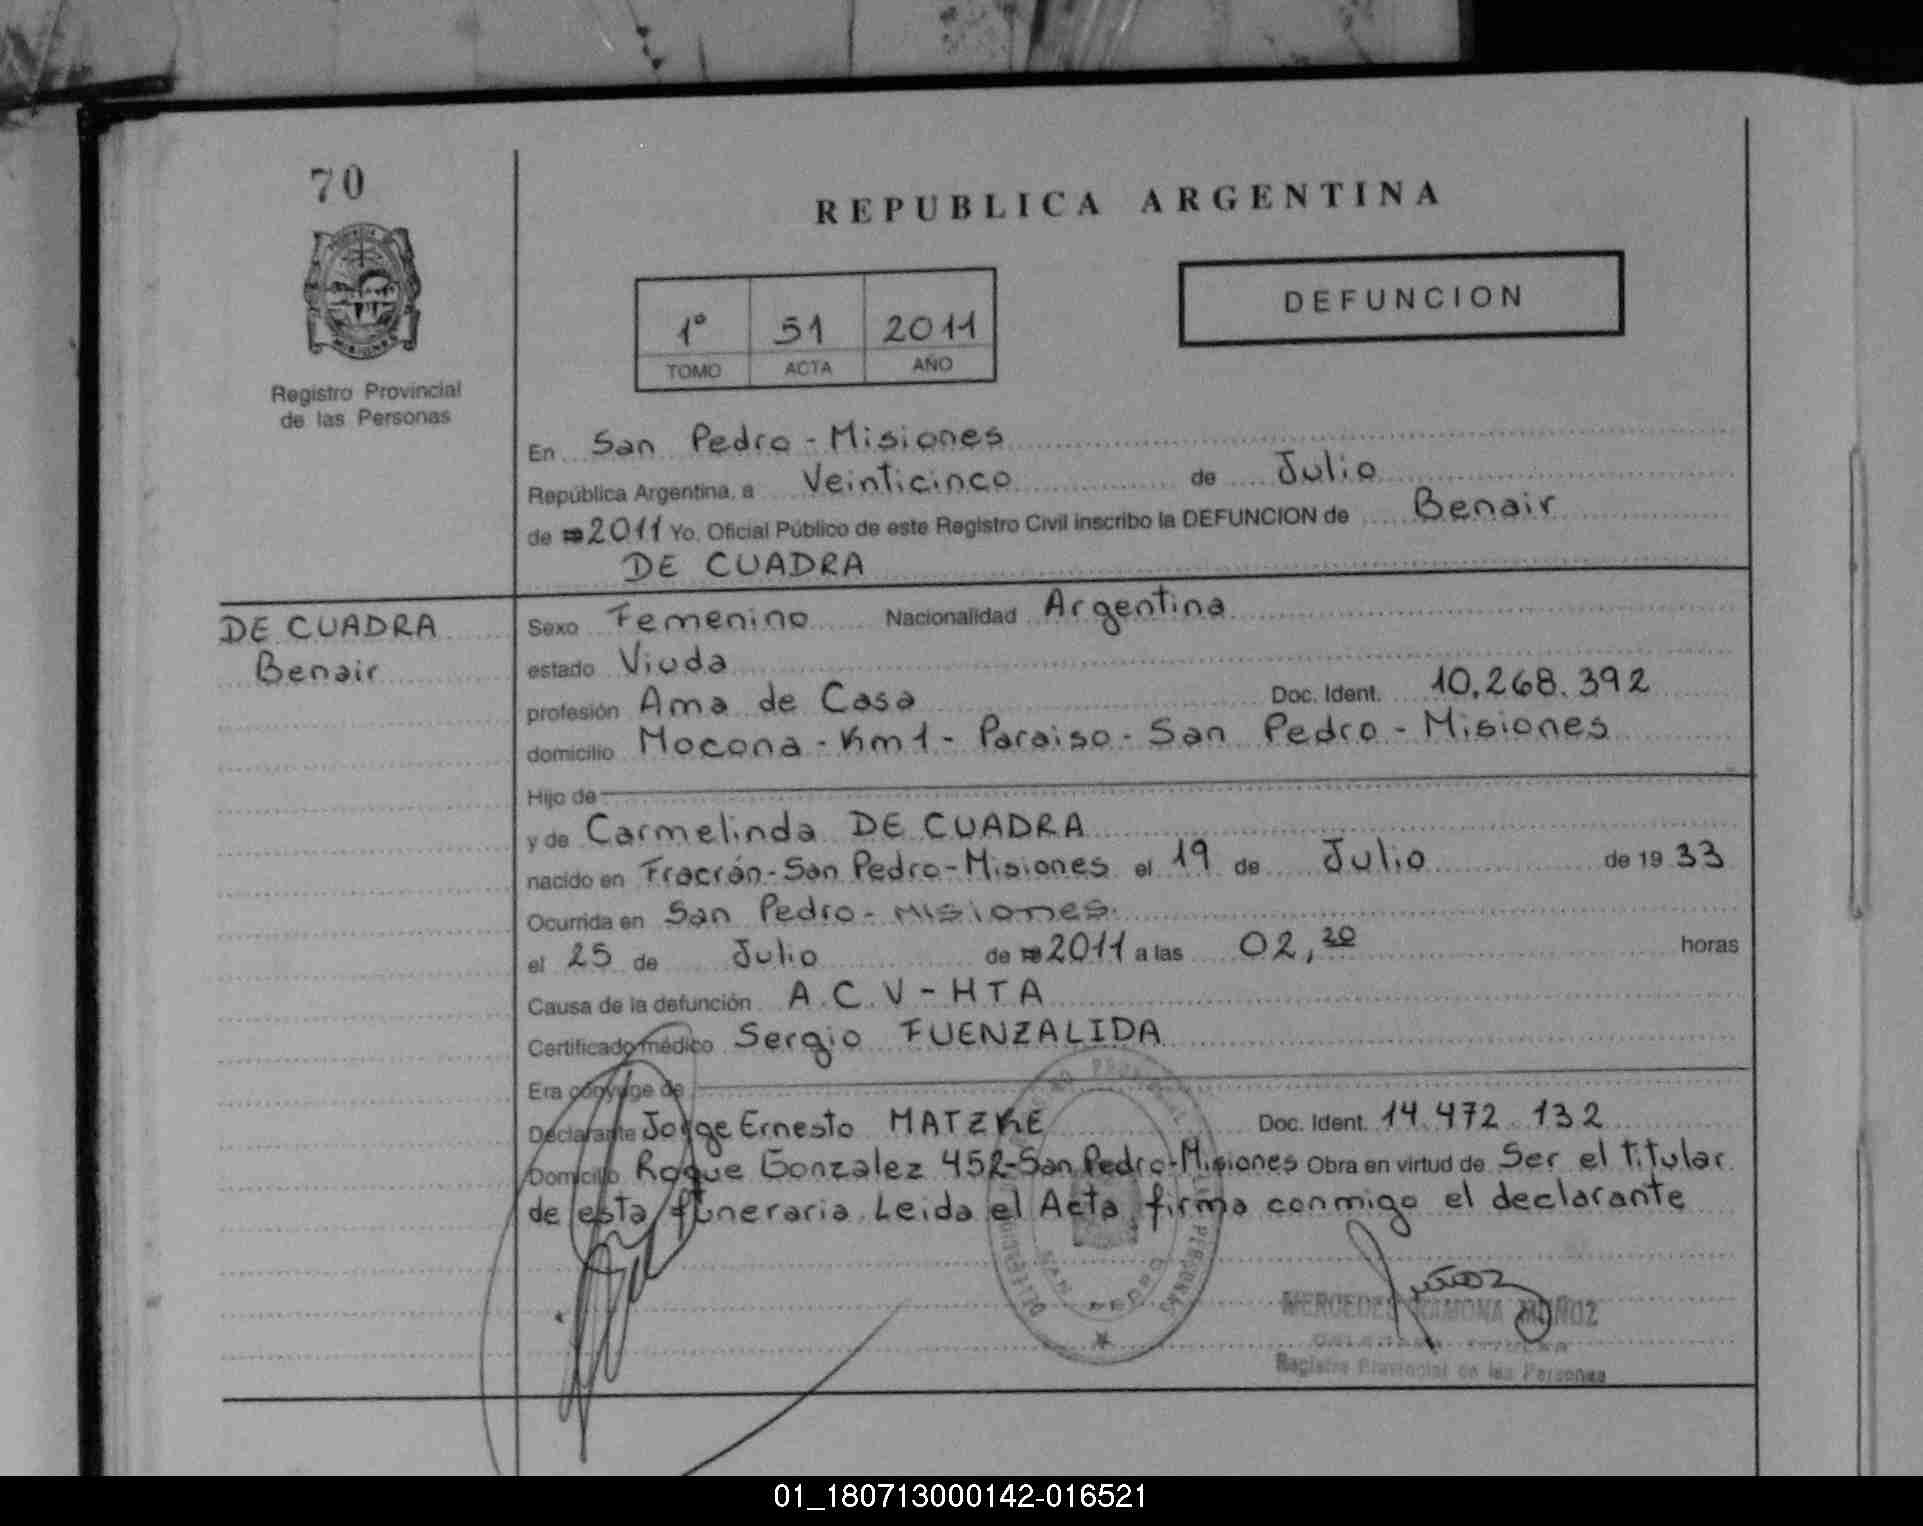 70
REPUBLICA ARGENTINA
DEFUNCION
1º 51 2011
TOMO ACTA AÑO
Registro Provincial
de las Personas
En San Pedro - Misiones
República Argentina, a Veinticinco de Julio
de 2011 Yo, Oficial Público de este Registro Civil inscribo la DEFUNCION de Benair
DE CUADRA
DE CUADRA
Benair
Sexo Femenino Nacionalidad Argentina
estado Viuda
profesión Ama de Casa Doc. Ident. 10.268.392
domicilio Mocona - Km 1 - Paraiso - San Pedro - Misiones
Hijo de
y de Carmelinda DE CUADRA
nacido en Fracrán - San Pedro - Misiones el 19 de Julio de 19 33
Ocurrida en San Pedro - Misiones
el 25 de Julio de 2011 a las 02,20 horas
Causa de la defunción A.C.V - HTA
Certificado médico Sergio FUENZALIDA
Era cónyuge de
Declarante Jorge Ernesto MATZKE Doc. Ident. 14.472.132
Domicilio Roque Gonzalez 452 - San Pedro - Misiones Obra en virtud de Ser el titular
de esta funeraria. Leida el Acta firma conmigo el declarante
MERCEDES RAMONA MUÑOZ
Registro Provincial de las Personas
01_180713000142-016521